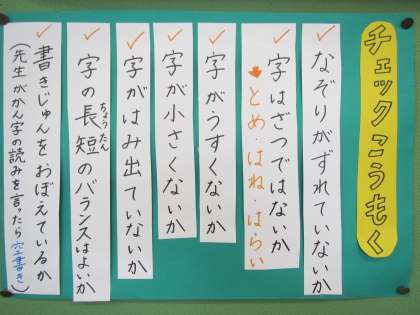 チェックこうもく
✓なぞりがずれていないか
✓字はざつではないか
→とめ・はね・はらい
✓字がうすくないか
✓字が小さくないか
✓字がはみ出ていないか
✓字の長短のバランスはよいか
ちょうたん
✓書きじゅんをおぼえているか
(先生がかん字の読みを言ったら空書き)